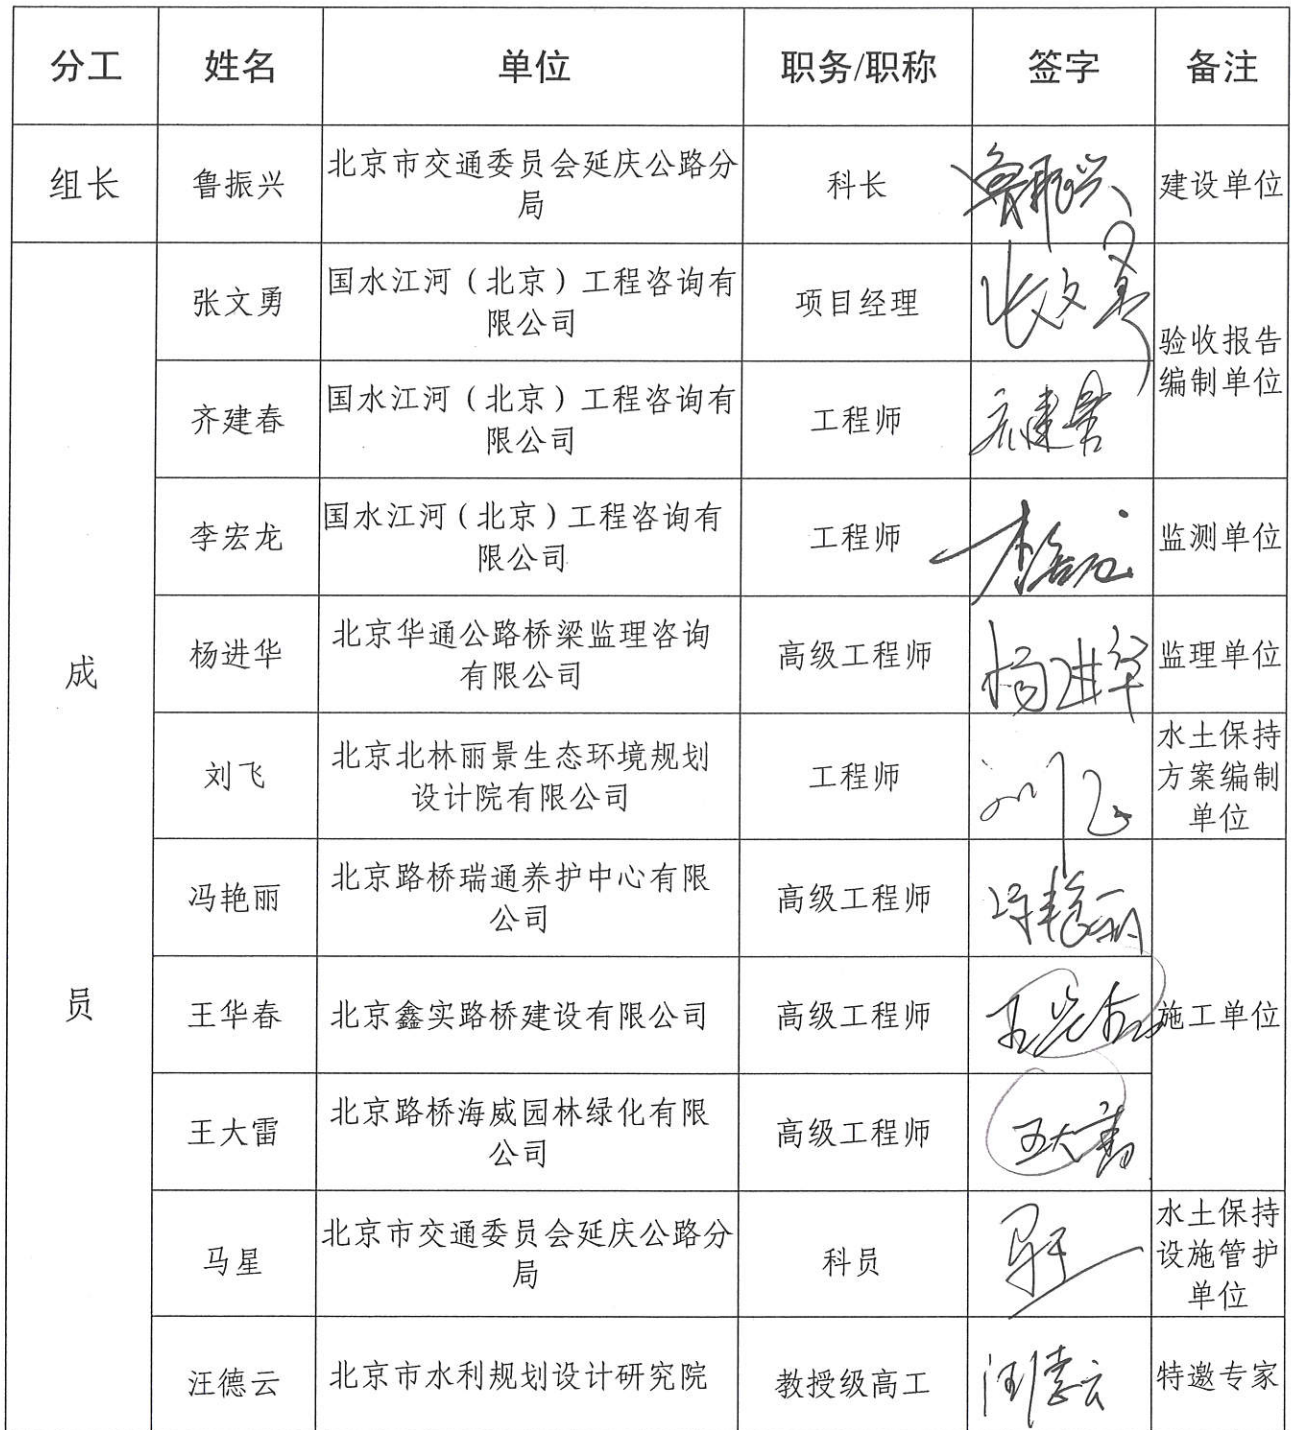 分工 姓名 单位 职务/职称 签字 备注
组长 鲁振兴 北京市交通委员会延庆公路分
局 科长 鲁振兴 建设单位
成
员
张文勇 国水江河（北京）工程咨询有
限公司 项目经理 张文勇
验收报告
编制单位
齐建春 国水江河（北京）工程咨询有
限公司 工程师 齐建春
李宏龙 国水江河（北京）工程咨询有
限公司 工程师 李宏龙 监测单位
杨进华 北京华通公路桥梁监理咨询
有限公司 高级工程师 杨进华 监理单位
刘飞 北京北林丽景生态环境规划
设计院有限公司 工程师 刘飞
水土保持
方案编制
单位
冯艳丽 北京路桥瑞通养护中心有限
公司 高级工程师 冯艳丽
王华春 北京鑫实路桥建设有限公司 高级工程师 施工单位
王大雷 北京路桥海威园林绿化有限
公司 高级工程师 王大雷
马星 北京市交通委员会延庆公路分
局 科员 马星
水土保持
设施管护
单位
汪德云 北京市水利规划设计研究院 教授级高工 汪德云 特邀专家